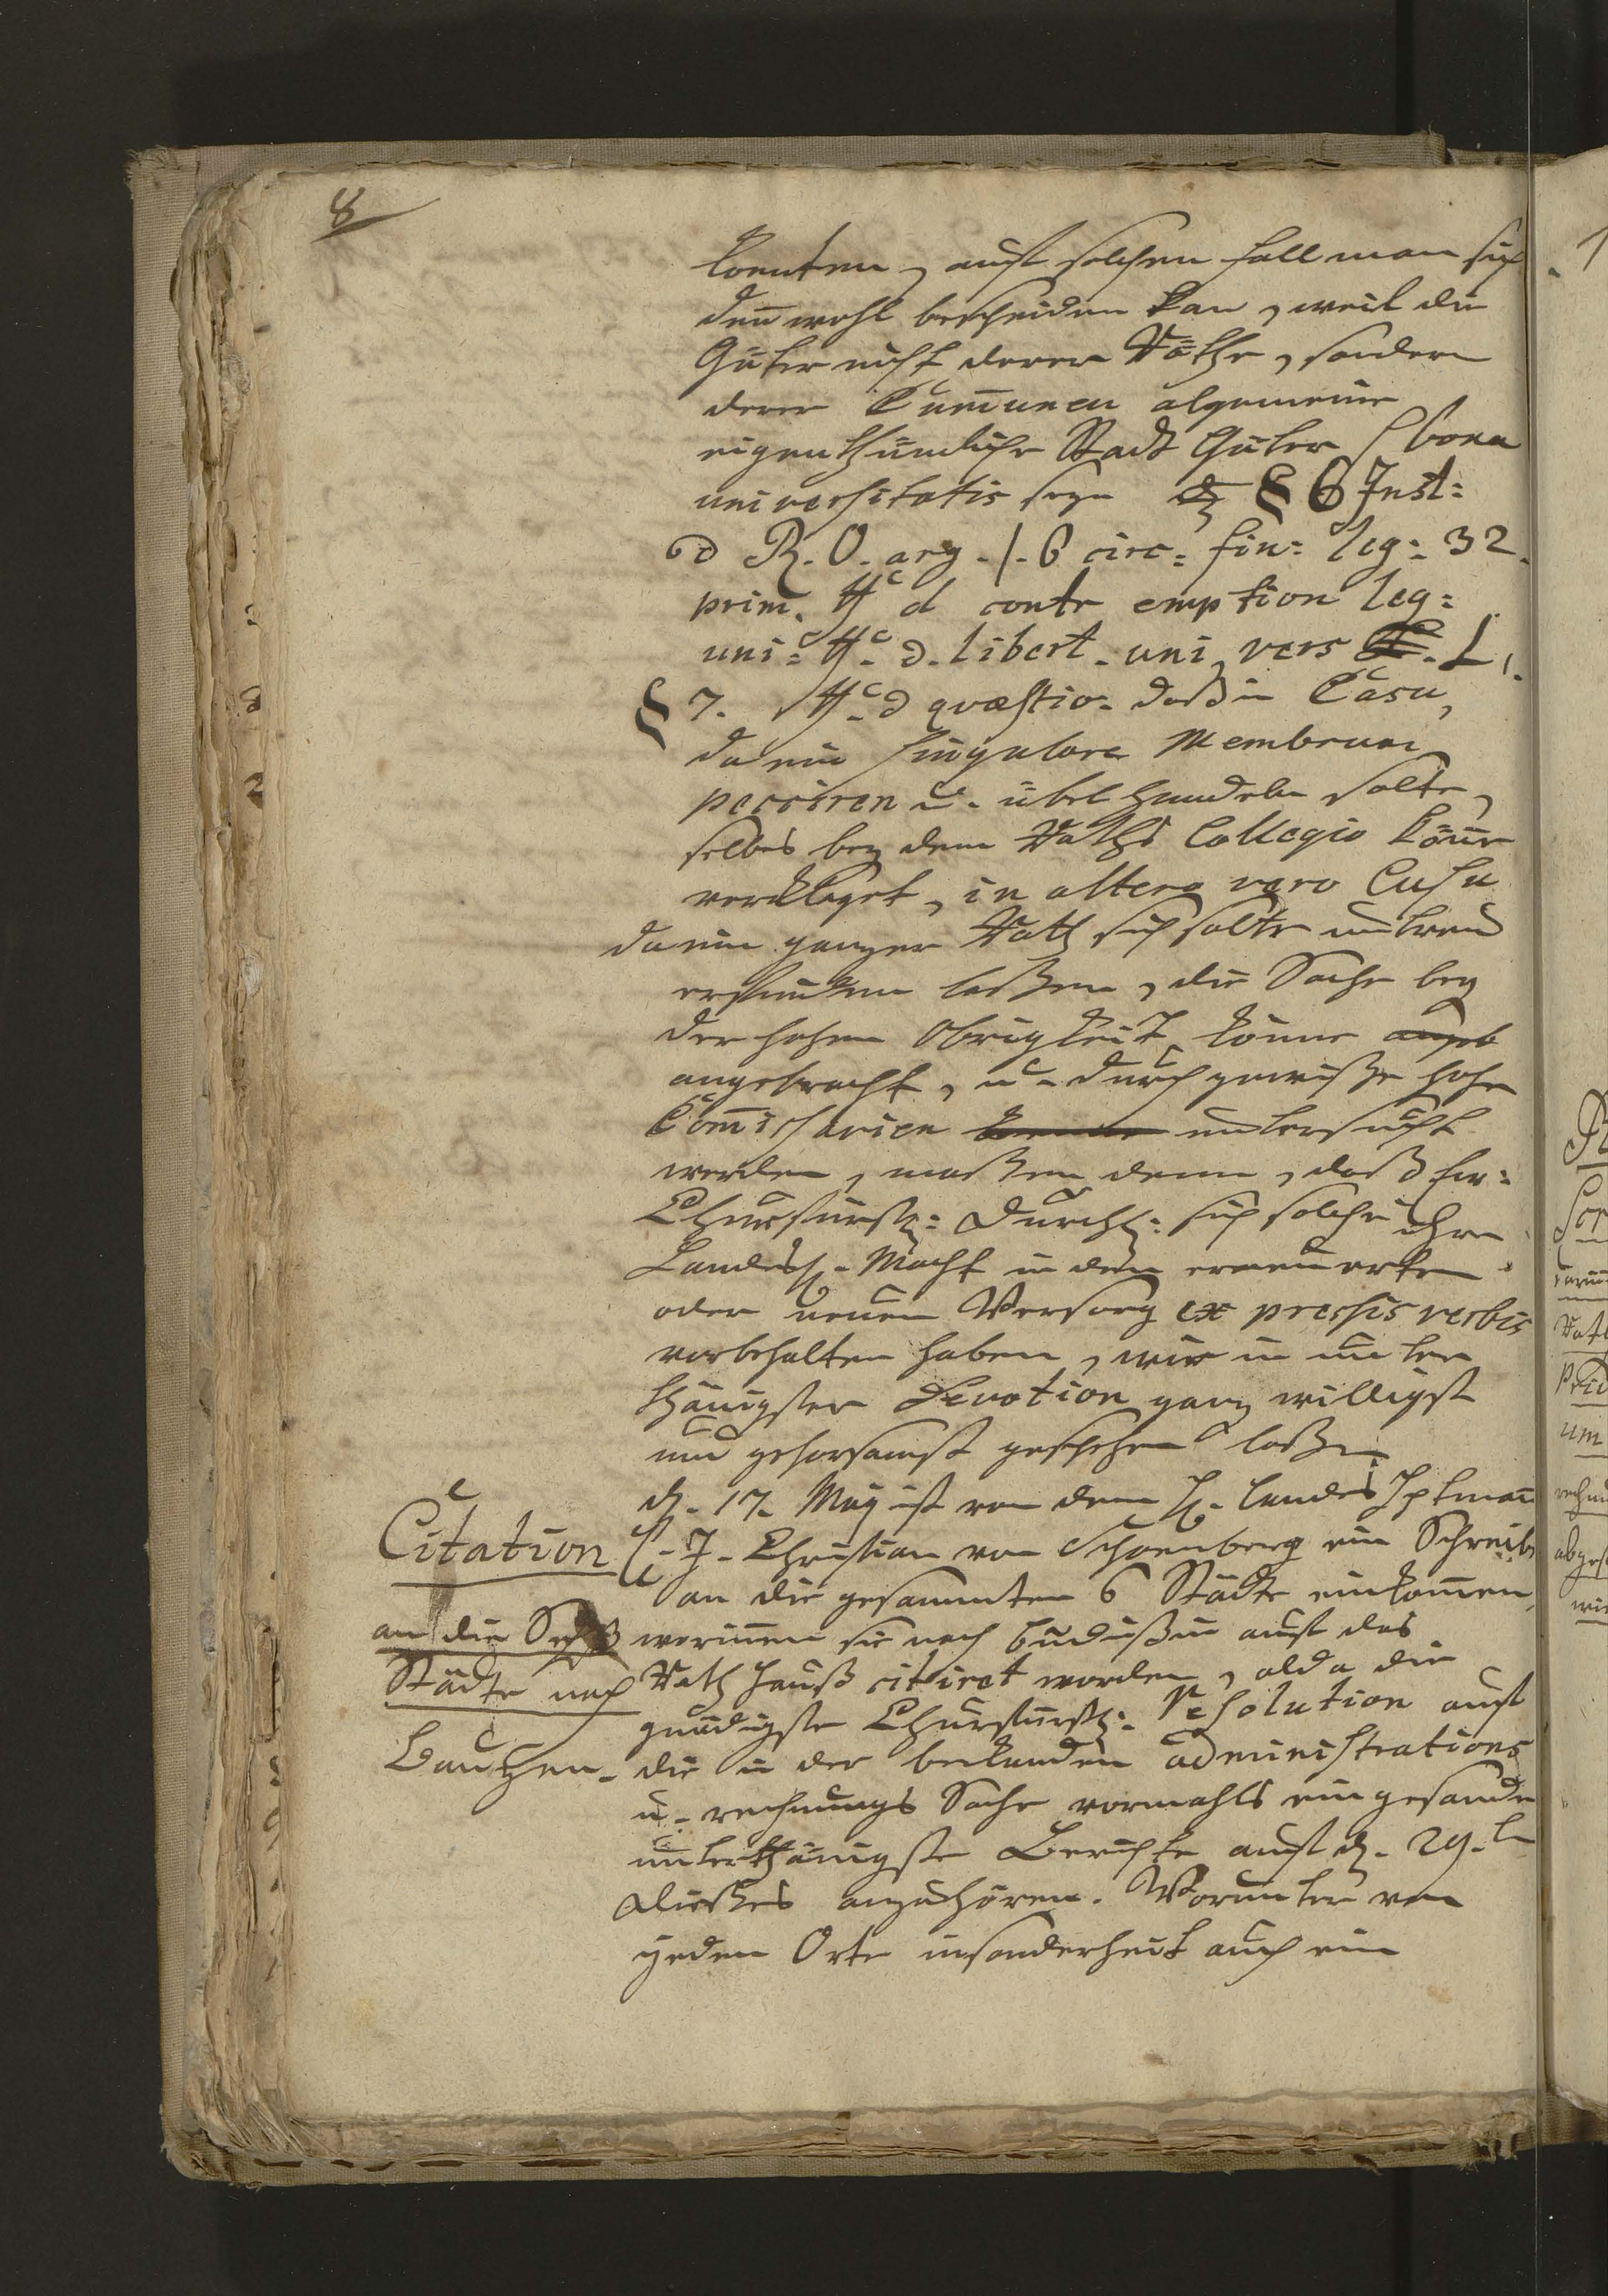 8
konten, auf solchen fall man sich
deñ wohl bescheiden kan, weil die
Güter nicht derer Räthe, sondern
derer Cum̃unen algemeine
eigenthümliche Stadt Güter / bona
universitatis seyn § 6 Inst:
d R. O. arg. l. 6 circ: fin: leg: 32.
prim. ff d contr emption leg:
uni: ff. d. libert. uni vers L.
§ 7. ff. d quæstio. daß in Casu,
da ein singulare Membrum
pecciren u. übel handeln solte,
selbes bey dem Raths Collegio köñe
verklaget, in altero vero Casu
da ein ganzer Rath sich solte untreu
erfinden laßen, die Sache bey
der hohen Obrigkeit könne angeb
angebracht, u. durch gewiße hohe
Com̃issarien untersucht
werden, maßen denn, daß Ew:
Churfürstl: Durchl: sich solche ihre
Landesh. Macht in den erneuerten
oder neuen Versorg ex pressis verbis
vorbehalten haben, wir in unter
thänigster Devotion ganz willigst
und gehorsamst geschehen laßen
d. 17. May ist von dem H. Landes Hptmañ
Citation
C. J. Christian von Schoenberg ein Schreib
an die gesammten 6 Städte einkom̃en,
an die Sechß
worinnen sie nach Budißin auf das
Städte nach
Rath Hauß citiret worden, alda die
gnädigste Churfürstl: Resolution auf
Bautzen.
die in der bekanden administrations
u. rechnungs Sache vormahls eingesande
unterthänigste Berichte auf d. 29.t
dießes anzuhören. Worunter von
jeden Orte insonderheit auch ein